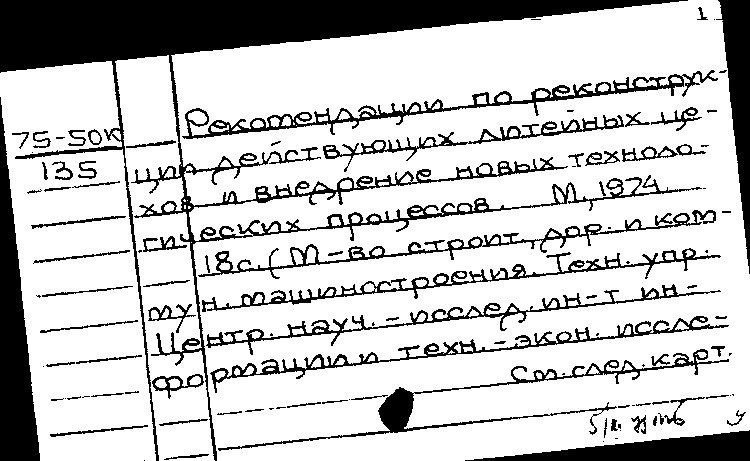 1
75-50к
135
Рекомендации по реконструк-
ции действующих литейных це-
хов и внедрение новых техноло-
гических процессов. М., 1974.
18с. (М-во строит., дор. и ком-
мун. машиностроения. Техн. упр.
Центр. науч.-исслед. ин-т ин-
формации и техн.-экон. иссле-
См. след. карт.